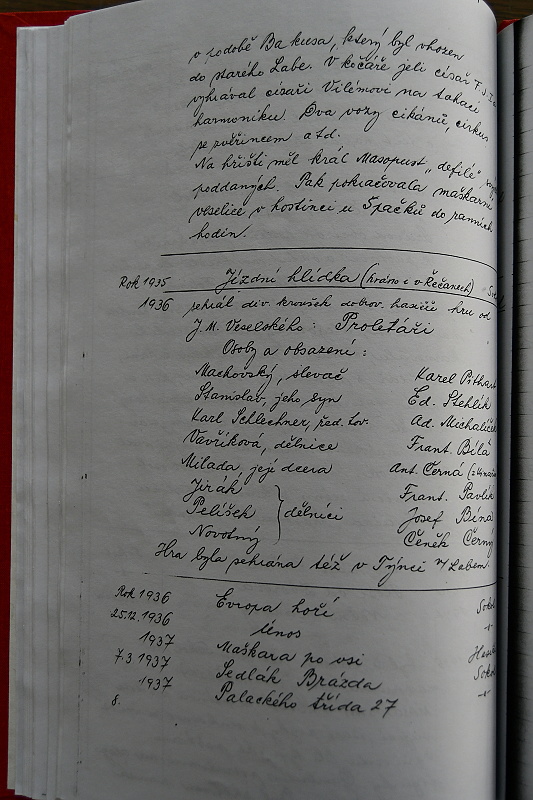 v podobě Bakusa, který byl vhozen
do starého Labe. V kočáře jeli císař F. J. I. a
vyhrával císaři Vilémovi na tahací
harmoniku. Dva vozy cikánů, cirkus
se zvěřincem atd.
Na hřišti měl král Masopust "defilé"
poddaných. Pak pokračovala maškarní
veselice v hostinci u Špačků do ranních
hodin.
Rok 1935 Jízdní hlídka (hráno i v Řečanech)
1936 sehrál div. kroužek dobrov. hasičů hru od
J. M. Veselského: Proletáři
Osoby a obsazení:
Machovský, slevač Karel Pithart
Stanislav, jeho syn Ed. Stehlík
Karl Schlechner, řed. tov. Ad. Michalíček
Vavříková, dělnice Frant. Bílá
Milada, její dcera Ant. Černá
Jirák Frant. Pavlík
Pelíšek } dělníci Josef Bína
Novotný Čeněk Černý
Hra byla sehrána též v Týnci n/Labem.
Rok 1936 Evropa hoří Sokol
25.12.1936 Únos -"-
1937 Maškara po vsi Hasiči
7.3 1937 Sedlák Brázda Sokol
1937 Palackého třída 27 -"-
8.